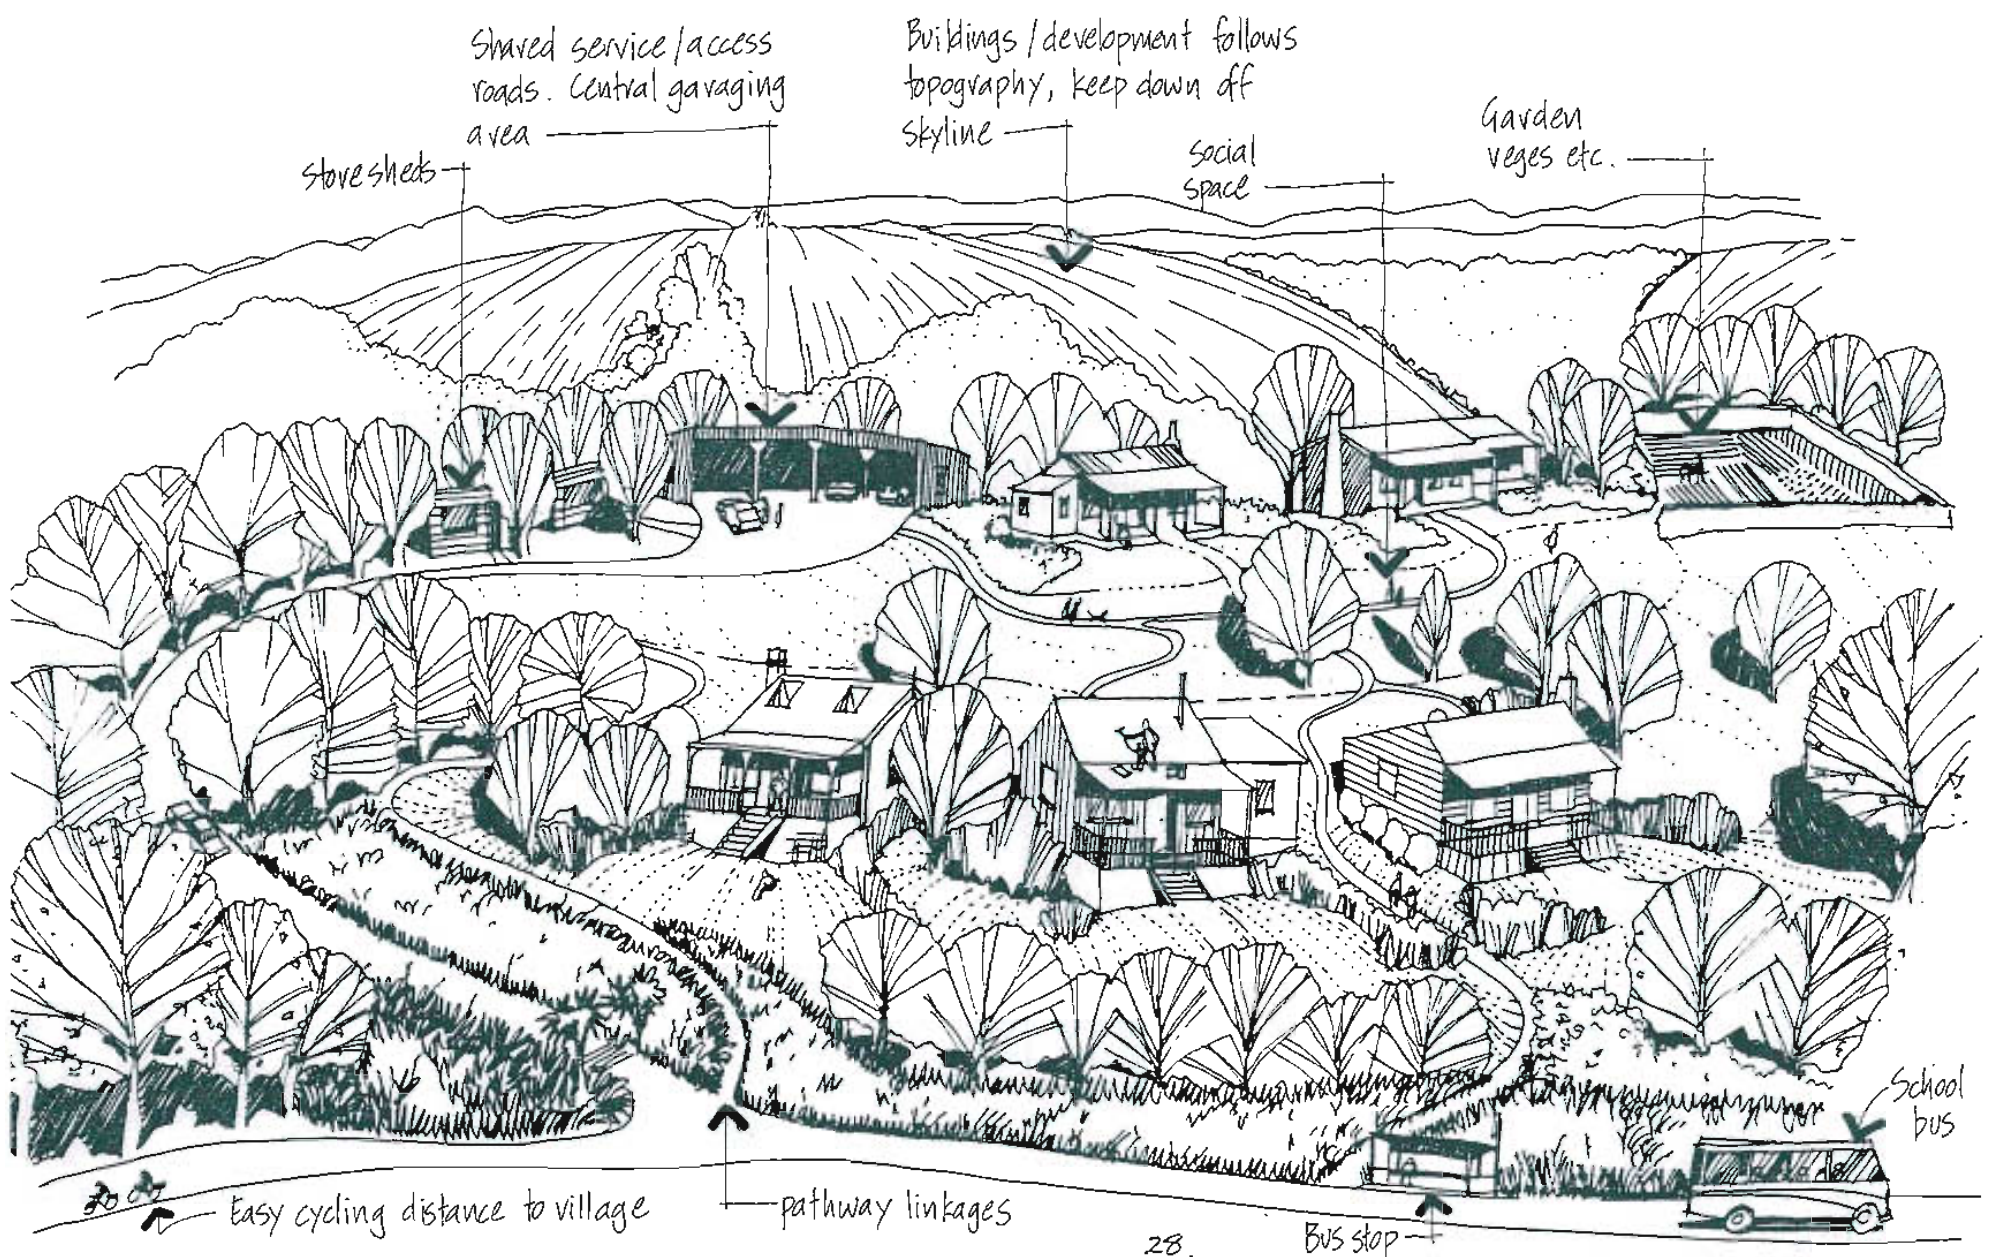 Shared service/access
roads. Central garaging
area
Buildings/development follows
topography, keep down off
skyline
Garden
veges etc.
social
space
store sheds
School
bus
Easy cycling distance to village
pathway linkages
Bus stop
28.